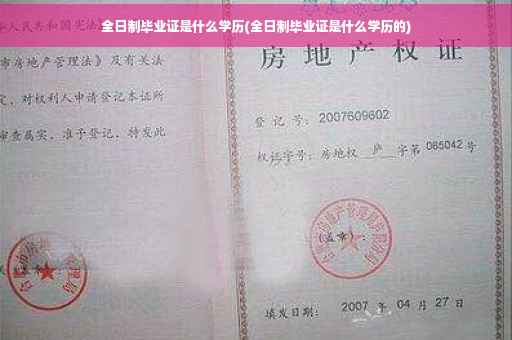 全日制毕业证是什么学历(全日制毕业证是什么学历的)
华人民共和国宪法
市房地产管理法》及有关法
定，对权利人申请登记本证所
审查属实，准予登记，特发此
房地产权证
登记号：2007609602
权证字号：房地权 庐 字第 085042 号
(盖章)：
填发日期： 2007 年 04 月 27 日